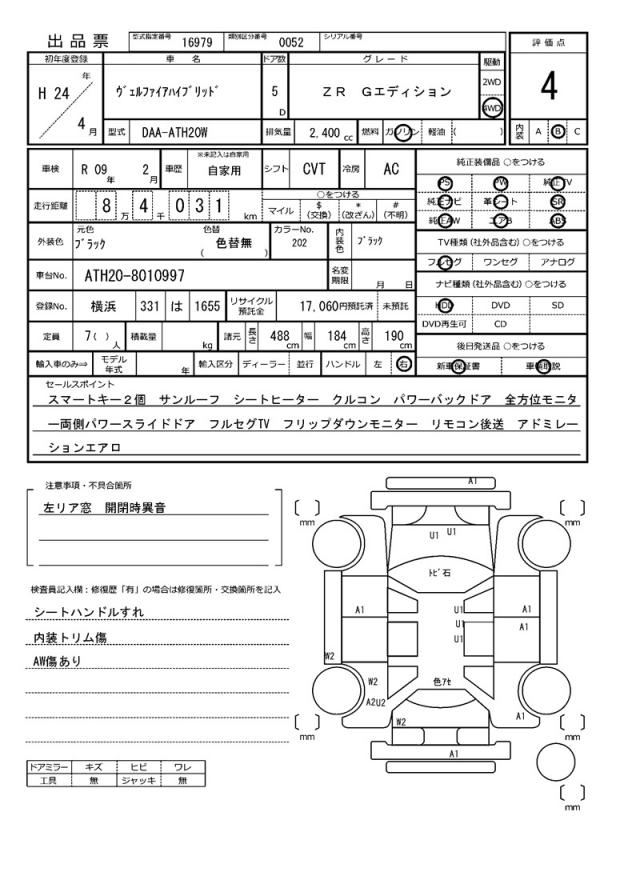 出品票 型式指定番号 16979 類別区分番号 0052 シリアル番号
評価点
4
初年度登録 車名 ドア数 グレード 駆動
H 24 年 4 月 ヴェルファイアハイブリッド 5 D ZR Gエディション 2WD 4WD
型式 DAA-ATH20W 排気量 2,400 cc 燃料 ガソリン 軽油 ( ) 内装 A B C
車検 R 09 年 2 月 車歴 ※未記入は自家用 自家用 シフト CVT 冷房 AC
純正装備品 ○をつける
PS PW 純正TV
純正ナビ 革シート SR
純正AW エアB ABS
走行距離 8 万 4 千 0 3 1 km ○をつける
マイル $(交換) *(改ざん) #(不明)
外装色 元色 ブラック 色替 色替無 ( ) カラーNo. 202 内装色 ブラック
TV種類 (社外品含む) ○をつける
フルセグ ワンセグ アナログ
車台No. ATH20-8010997 名変期限 月 日
ナビ種類 (社外品含む) ○をつける
HDD DVD SD
DVD再生可 CD
登録No. 横浜 331 は 1655 リサイクル預託金 17,060円預託済 未預託
定員 7( ) 人 積載量 kg 諸元 長さ 488 cm 幅 184 cm 高さ 190 cm
後日発送品 ○をつける
新車保証書 車輌取説
輸入車のみ⇒ モデル年式 年 輸入区分 ディーラー 並行 ハンドル 左 右
セールスポイント
スマートキー2個 サンルーフ シートヒーター クルコン パワーバックドア 全方位モニタ
ー両側パワースライドドア フルセグTV フリップダウンモニター リモコン後送 アドミレー
ションエアロ
注意事項・不具合箇所
左リア窓 開閉時異音
検査員記入欄:修復歴「有」の場合は修復箇所・交換箇所を記入
シートハンドルすれ
内装トリム傷
AW傷あり
ドアミラー キズ ヒビ ワレ
工具 無 ジャッキ 無
A1
mm mm
U1 U1
トビ石
A1 U1 A1
U1 A1
U1
W2
W2 色アセ
A2U2
W2 A1
mm mm
A1
mm